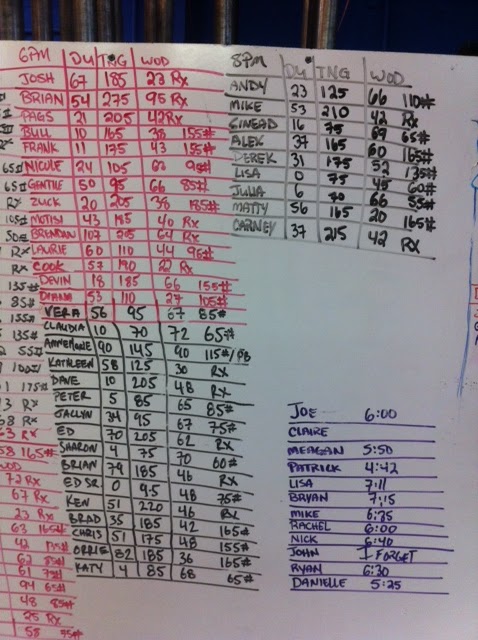 6PM DU TNG WOD
JOSH 67 185 23 Rx
BRIAN 54 275 95 Rx
PAGS 21 205 42 Rx
BULL 10 165 38 155#
FRANK 11 175 43 155#
NICOLE 24 105 62 95#
GENTILE 50 95 66 85#
ZUCK 20 205 38 185#
MOTISI 43 185 40 Rx
BRENDAN 107 215 64 Rx
LAURIE 60 110 44 95#
COOK 57 190 22 Rx
DEVIN 18 185 66 155#
DIANA 53 110 27 105#
VERA 56 95 67 85#
CLAUDIA 10 70 72 65#
ANNEMARIE 90 145 90 115#/PB
KATHLEEN 58 125 30 Rx
DAVE 10 205 48 Rx
PETER 5 85 65 85#
JACLYN 34 95 67 75#
ED 70 205 62 Rx
SHARON 4 75 70 60#
BRIAN 79 185 46 Rx
ED SR 0 95 48 75#
KEN 51 220 46 Rx
BRAD 35 185 42 165#
CHRIS 51 175 48 155#
ORRIE 82 185 36 165#
KATY 4 85 68 65#
8PM DU TNG WOD
ANDY 23 125 66 110#
MIKE 53 210 42 Rx
SINEAD 16 75 69 65#
ALEK 37 165 60 165#
DEREK 31 175 52 135#
LISA 0 75 45 60#
JULIA 6 70 66 55#
MATTY 56 165 20 165#
CARNEY 37 215 42 Rx
JOE 6:00
CLAIRE
MEAGAN 5:50
PATRICK 4:42
LISA 7:11
BRYAN 7:15
MIKE 6:35
RACHEL 6:00
NICK 6:40
JOHN I FORGET
RYAN 6:30
DANIELLE 5:25
65#
65#
Rx
165#
50#
Rx
Rx
135#
85#
155#
135#
55#
100#
175#
3 Rx
68 Rx
63 Rx
58 165#
WOD
72 Rx
67 Rx
23 Rx
63 165#
42
62 85#
61 75#
94 65#
48 85#
25 Rx
58 95#